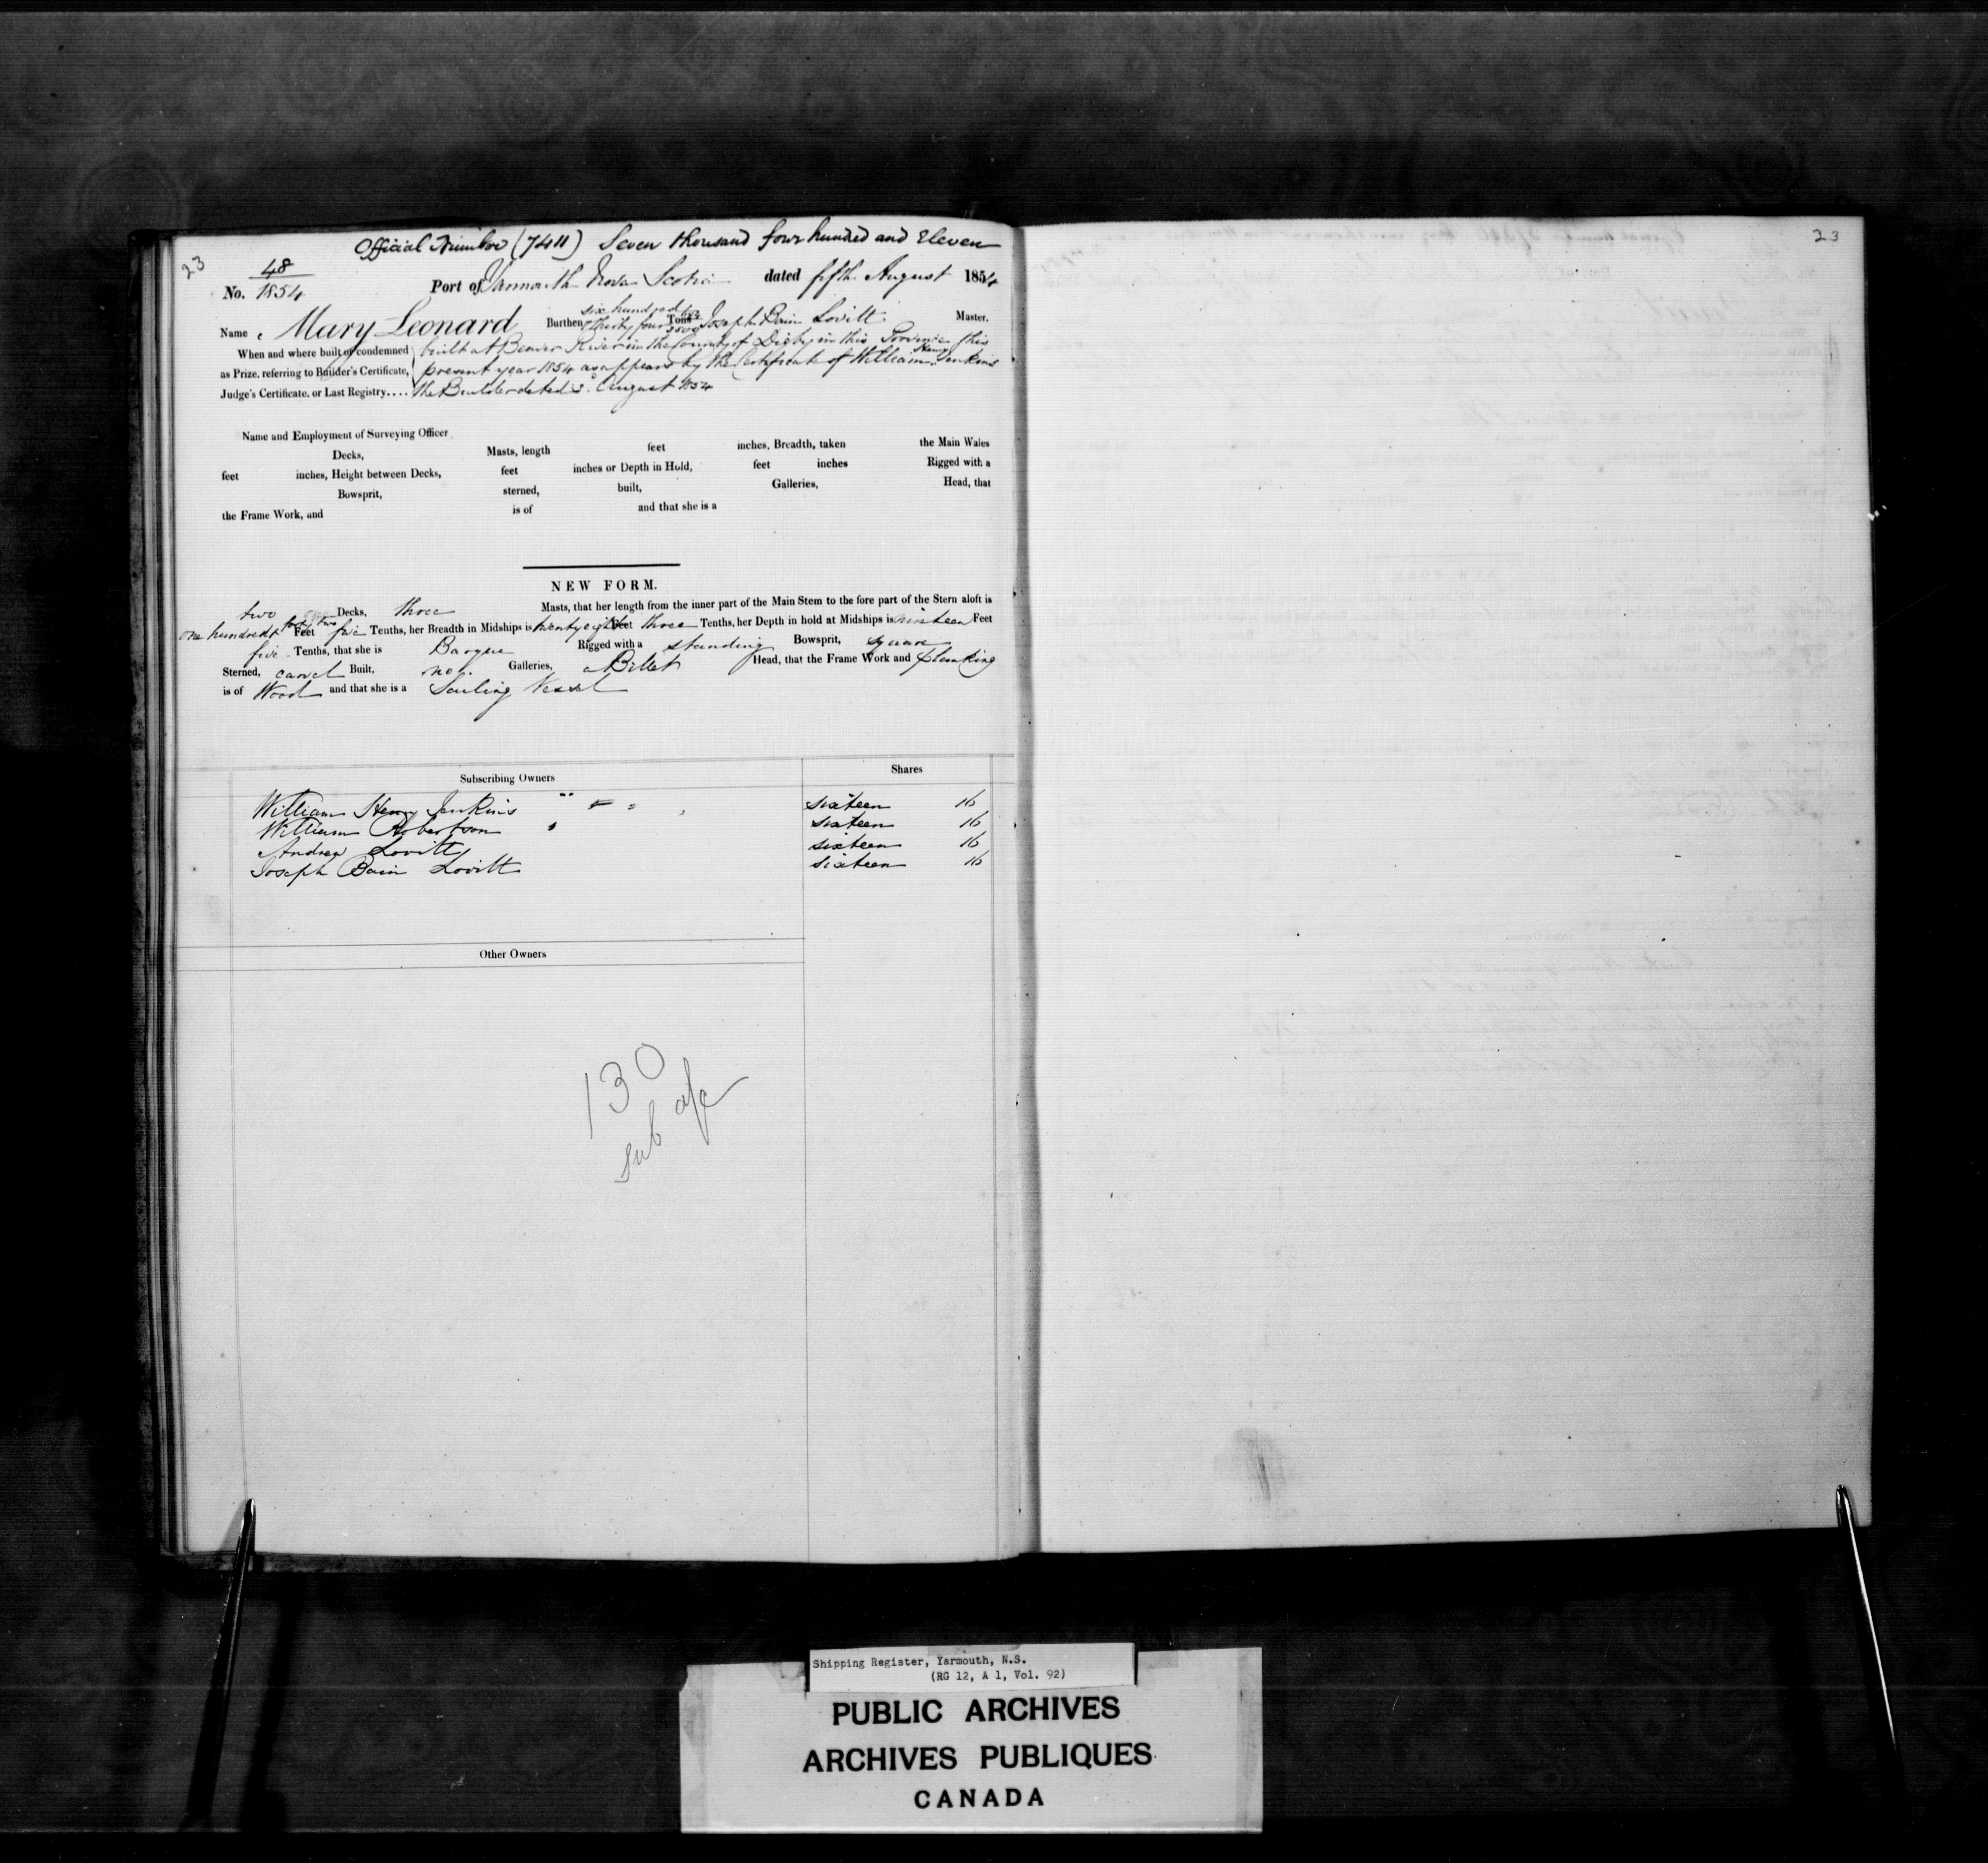 Official Number (7411) Seven thousand four hundred and Eleven
23
No. 48/1854 Port of Yarmouth Nova Scotia dated fifth August 1854
Name Mary Leonard Burthen six hundred & thirty four Tons Joseph Bain Lovitt Master.
When and where built or condemned built at Beaver River in the County of Digby in this Province this
as Prize, referring to Builder's Certificate, present year 1854 as appears by the Certificate of William Henry Jenkins
Judge's Certificate, or Last Registry.... the Builder dated August 1854
Name and Employment of Surveying Officer
Decks, Masts, length feet inches, Breadth, taken the Main Wales
feet inches, Height between Decks, feet inches or Depth in Hold, feet inches Rigged with a
Bowsprit, sterned, built, Galleries, Head, that
the Frame Work, and is of and that she is a
NEW FORM.
two Decks, three Masts, that her length from the inner part of the Main Stem to the fore part of the Stern aloft is
one hundred & forty two Feet five Tenths, her Breadth in Midships is twenty eight Feet three Tenths, her Depth in hold at Midships is nineteen Feet
five Tenths, that she is Barque Rigged with a standing Bowsprit, square
Sterned, carvel Built, no Galleries, a Billet Head, that the Frame Work and planking
is of Wood and that she is a Sailing Vessel
Subscribing Owners Shares
William Henry Jenkins sixteen 16
William Robertson sixteen 16
Andrew Lovitt sixteen 16
Joseph Bain Lovitt sixteen 16
Other Owners
130
sub a/c
23
Shipping Register, Yarmouth, N.S.
(RG 12, A 1, Vol. 92)
PUBLIC ARCHIVES
ARCHIVES PUBLIQUES
CANADA